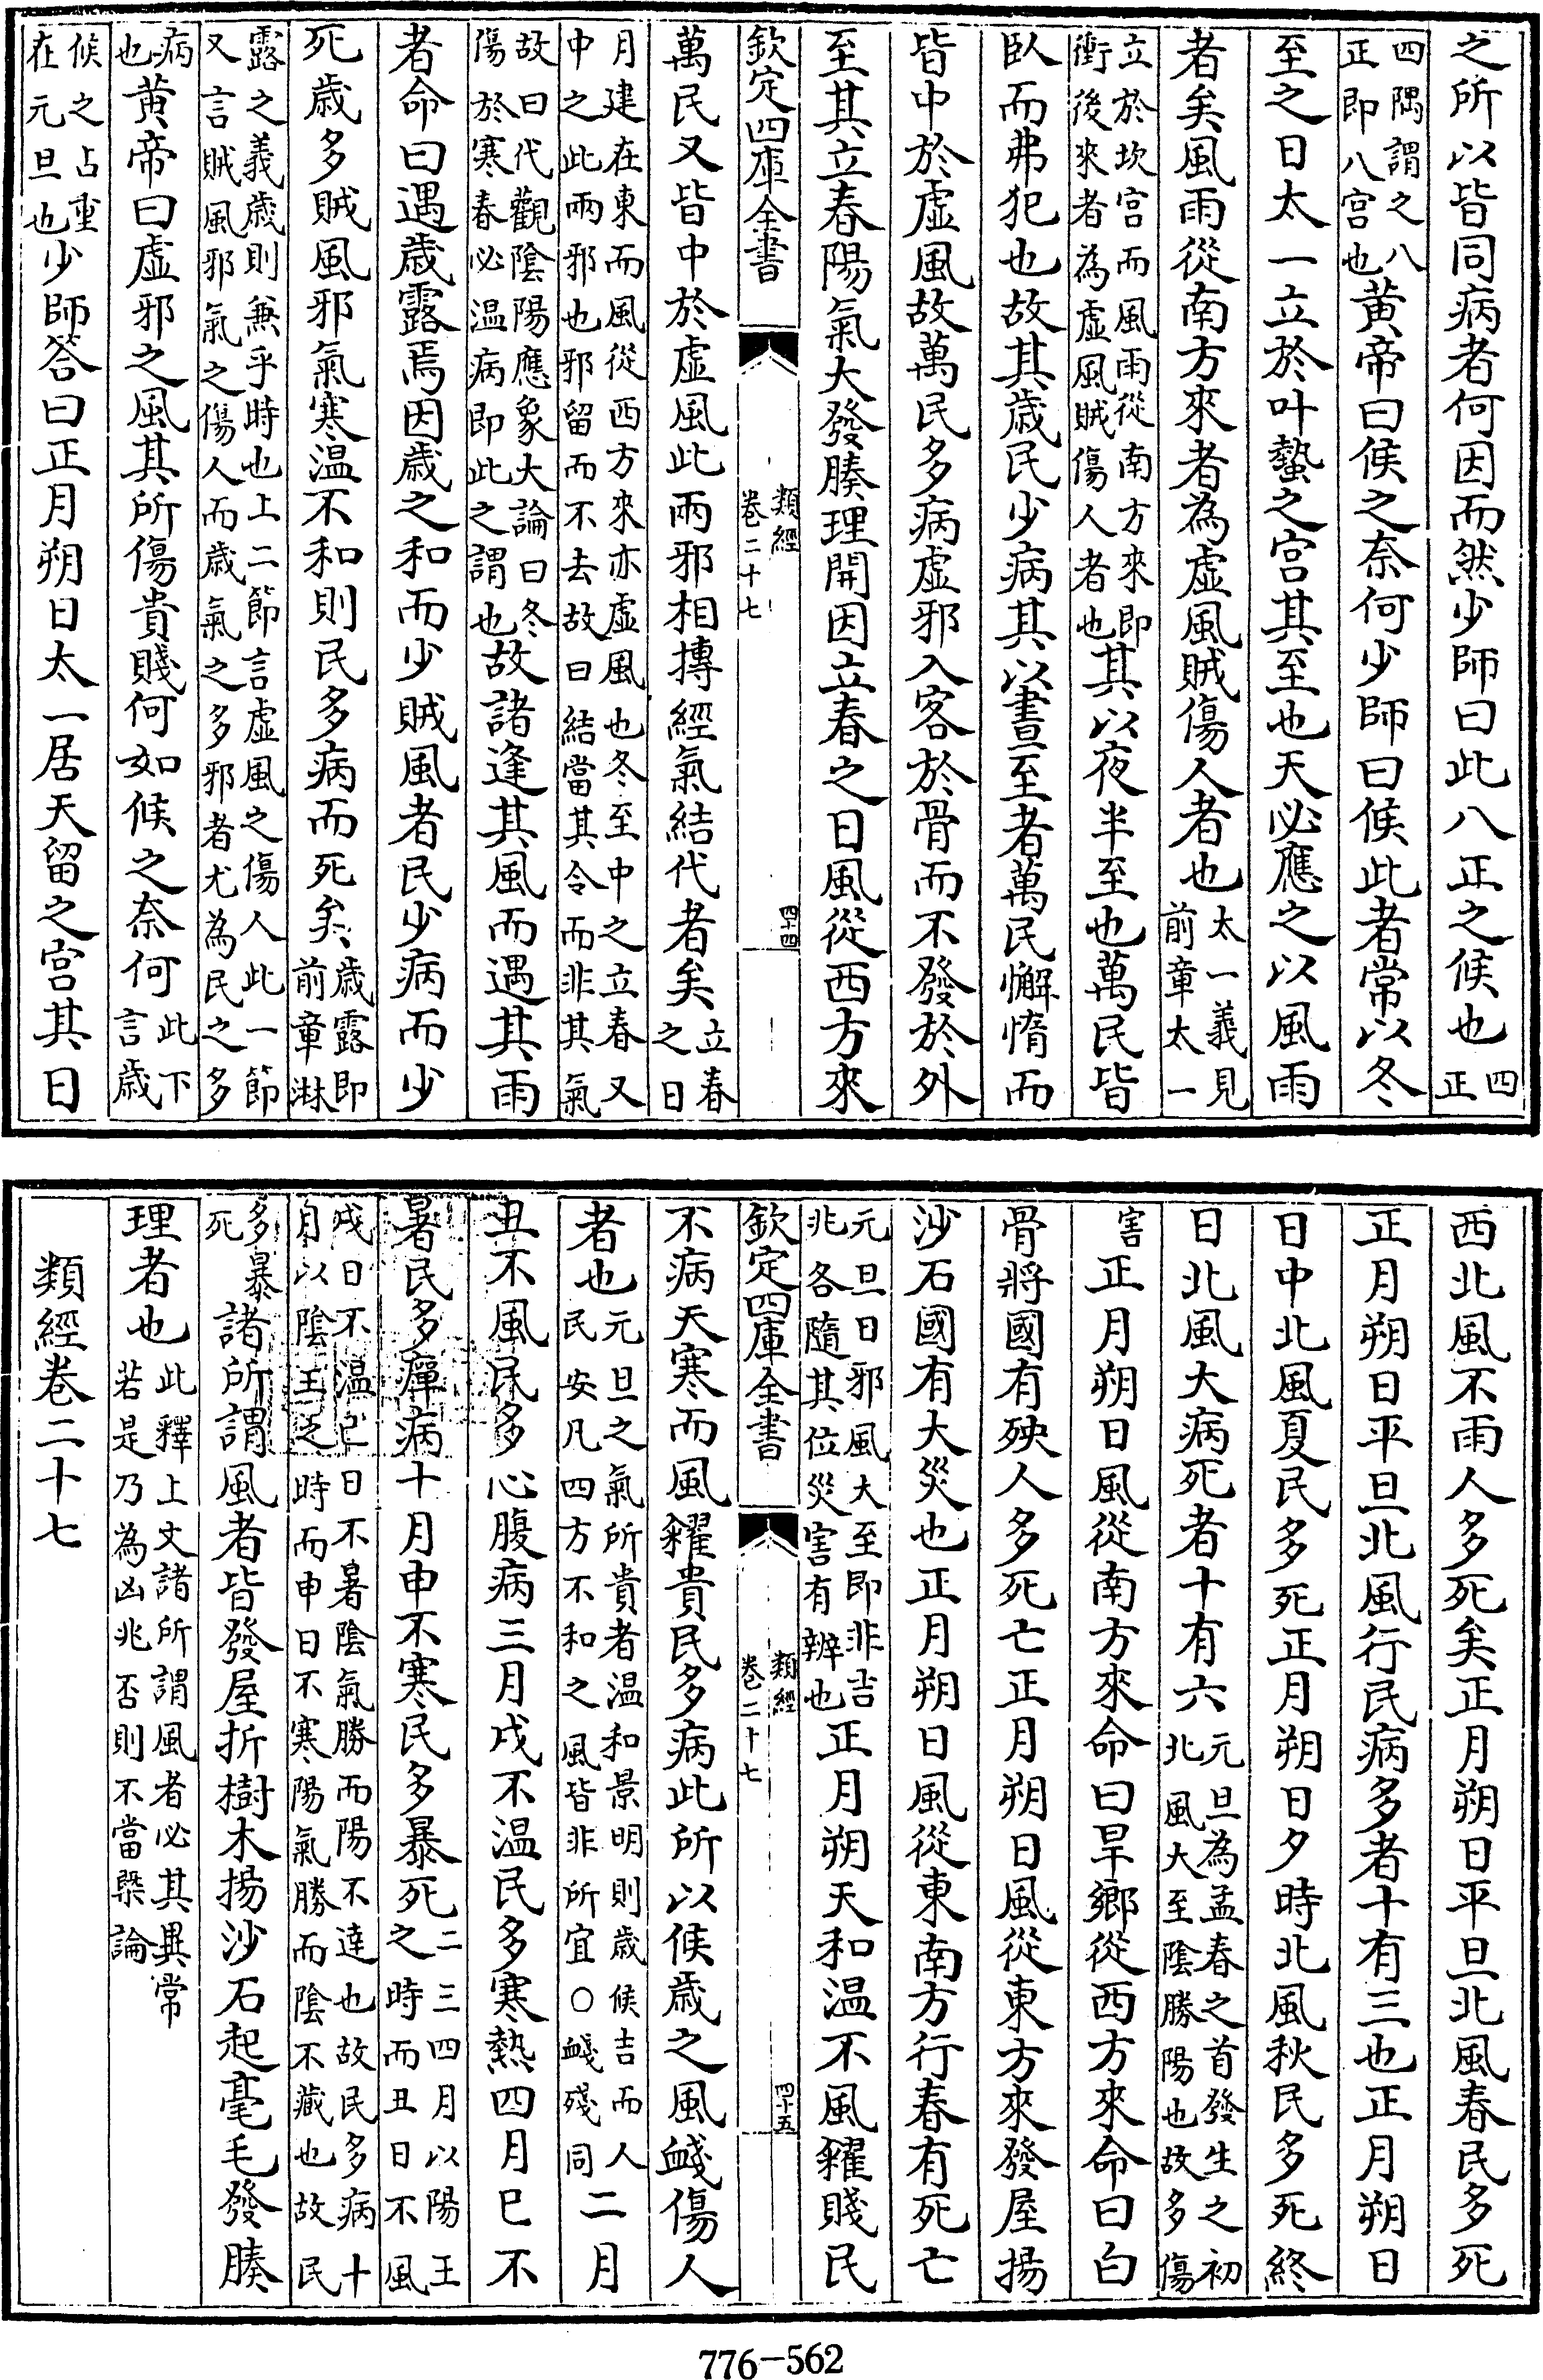 之所以皆同病者何因而然少師曰此八正之候也四正
四隅謂之八正即八宫也黄帝曰候之奈何少師曰候此者常以冬
至之日太一立於叶蟄之宫其至也天必應之以風雨
者矣風雨從南方來者為虚風賊傷人者也太一義見前章太一
立於坎宫而風雨從南方來即衝後來者為虚風賊傷人者也其以夜半至也萬民皆
臥而弗犯也故其歳民少病其以晝至者萬民懈惰而
皆中於虚風故萬民多病虚邪入客於骨而不發於外
至其立春陽氣大發腠理開因立春之日風從西方來
欽定四庫全書 類經 卷二十七 四十四
萬民又皆中於虚風此兩邪相摶經氣結代者矣立春之日
月建在東而風從西方來亦虚風也冬至中之立春又中之此兩邪也邪留而不去故曰結當其令而非其氣
故曰代觀陰陽應象大論曰冬傷於寒春必温病即此之謂也故諸逢其風而遇其雨
者命曰遇歳露焉因歳之和而少賊風者民少病而少
死歳多賊風邪氣寒温不和則民多病而死矣歳露即前章淋
露之義歳則兼乎時也上二節言虚風之傷人此一節又言賊風邪氣之傷人而歳氣之多邪者尤為民之多
病也黄帝曰虚邪之風其所傷貴賤何如候之奈何此下言歳
候之占重在元旦也少師答曰正月朔日太一居天留之宫其日
西北風不雨人多死矣正月朔日平旦北風春民多死
正月朔日平旦北風行民病多者十有三也正月朔日
日中北風夏民多死正月朔日夕時北風秋民多死終
日北風大病死者十有六元旦為孟春之首發生之初北風大至陰勝陽也故多傷
害正月朔日風從南方來命曰旱鄉從西方來命曰白
骨將國有殃人多死亡正月朔日風從東方來發屋揚
沙石國有大災也正月朔日風從東南方行春有死亡
元旦日邪風大至即非吉兆各隨其位災害有辨也正月朔天和温不風糴賤民
欽定四庫全書 類經 卷二十七 四十五
不病天寒而風糴貴民多病此所以候歳之風䘓傷人
者也元旦之氣所貴者温和景明則歳候吉而人民安凡四方不和之風皆非所宜○䘓殘同二月
丑不風民多心腹病三月戌不温民多寒熱四月巳不
暑民多癉病十月申不寒民多暴死二三四月以陽王之時而丑日不風
戌日不温巳日不暑陰氣勝而陽不達也故民多病十月以陰王之時而申日不寒陽氣勝而陰不藏也故民
多暴死諸所謂風者皆發屋折樹木揚沙石起毫毛發腠
理者也此釋上文諸所謂風者必其異常若是乃為凶兆否則不當槩論
類經卷二十七
776-562